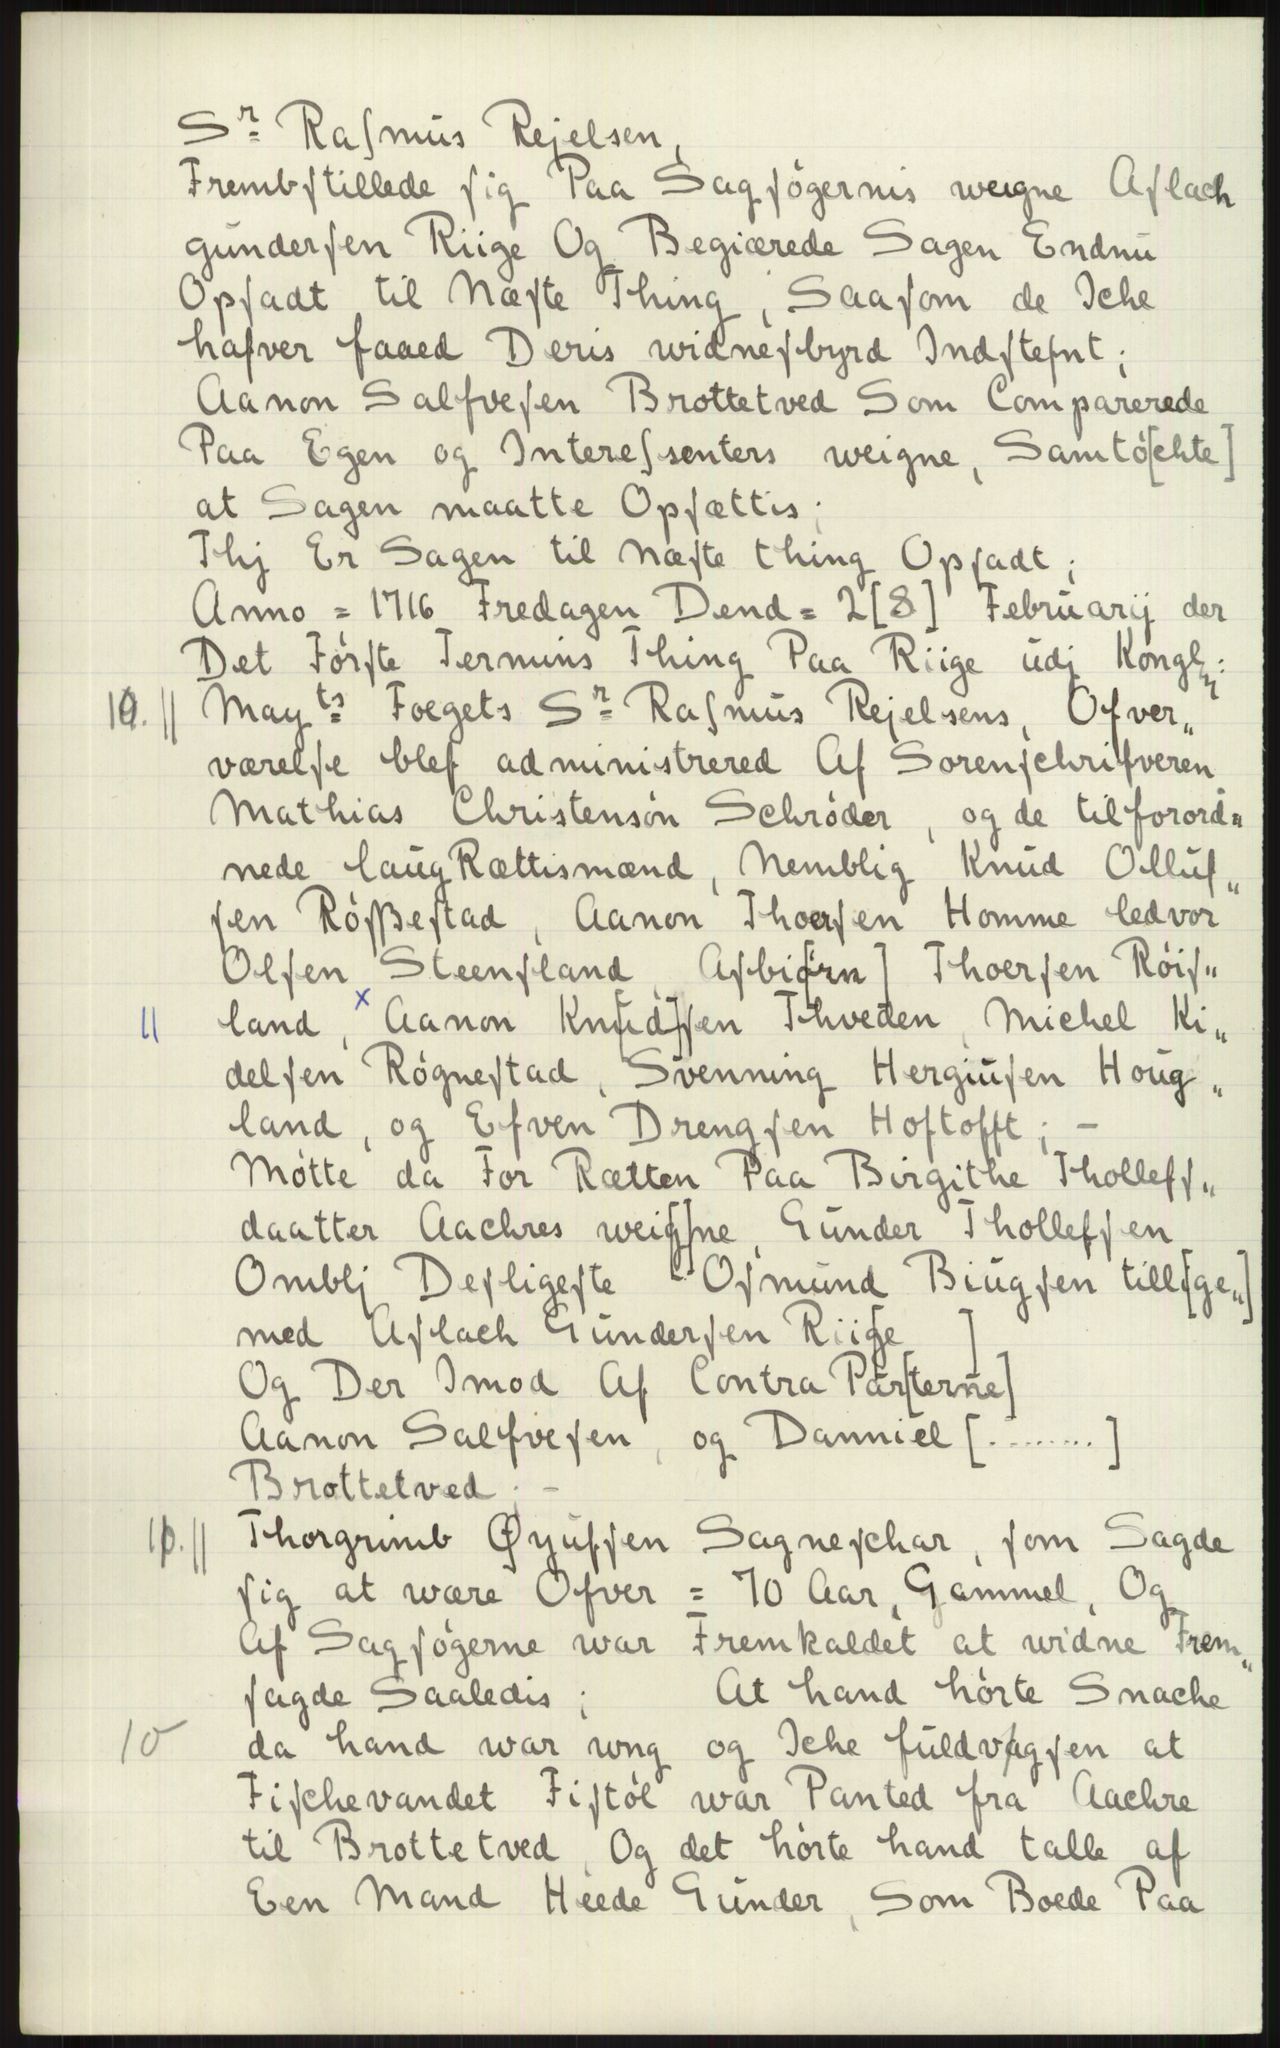 Sr= Raſmus Rejelsen,
Frembſtillede ſig Paa Sagſögernis weigne Aſlach
gunderſen Riige Og Begiærede Sagen Endnu
Opſadt til Næſte Thing, Saaſom de Iche
hafver faaed Deris widneſbyrd Indſtefnt;
Aanon Salfveſen Brottetved Som Comparerede
Paa Egen og Intereſsenters weigne, Samtö[chte]
at Sagen maatte Opſættis;
Thj Er Sagen til Næſte thing Opſadt;
Anno = 1716 Fredagen Dend = 2[8] Februarij der
Det Förſte Termins Thing Paa Riige udj Kongl:
10. || Mayts= Foegets Sr= Raſmus Rejelsens, Ofver„
værelſe blef administrered Af Sorenſchrifveren
Mathias Christensön Schröder, og de tilforord„
nede laugRættismænd, Nemblig Knud Olluf„
ſen Röſßeſtad, Aanon Thoerſen Homme ledvor
Olſen Steenſland, Aſbi[örn] Thoerſen Röiſ„
|| land, x Aanon Kn[ud]ſen Thveden, Michel Ki„
delſen Rögneſtad, Svenning Hergiuſen Houg„
land, og Efven Drengſen Hoftofft; –
Mötte da For Rætten Paa Birgithe Tholleſſ„
daatter Aachres wei[g]ne, Gunder Tholleſſen
Omblj Desſligeſte Oſmund Biugſen till[ge„]
med Aſlach Gunderſen Rii[ge ]
Og Der Imod Af Contra Par[terne]
Aanon Salfveſen, og Danniel [........]
Brottetved; –
10. || Thorgrimb Øyufſen Sagneſchar, ſom Sagde
ſig at wære Ofver = 70 Aar, Gammel, Og
Af Sagſögerne war Fremkaldet at widne Frem„
ſagde Saaledis; At hand hörte Snache
10 da hand war ung og Iche fuldvagſen at
Fiſchevandet Fiſtöl war Panted fra Aachre
til Brottetved, Og det hörte hand talle af
Een Mand Heede Gunder, Som Boede Paa